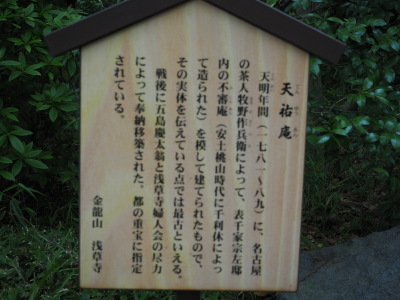 天祐庵
てん ゆう あん
天明年間（一七八一～八九）に、名古屋
の茶人牧野作兵衛によって、表千家宗左邸
内の不審庵（安土桃山時代に千利休によっ
て造られた）を模して建てられたもので、
その実体を伝えている点では最古といえる。
戦後に五島慶太翁と浅草寺婦人会の尽力
によって奉納移築された。都の重宝に指定
されている。
金龍山　浅草寺